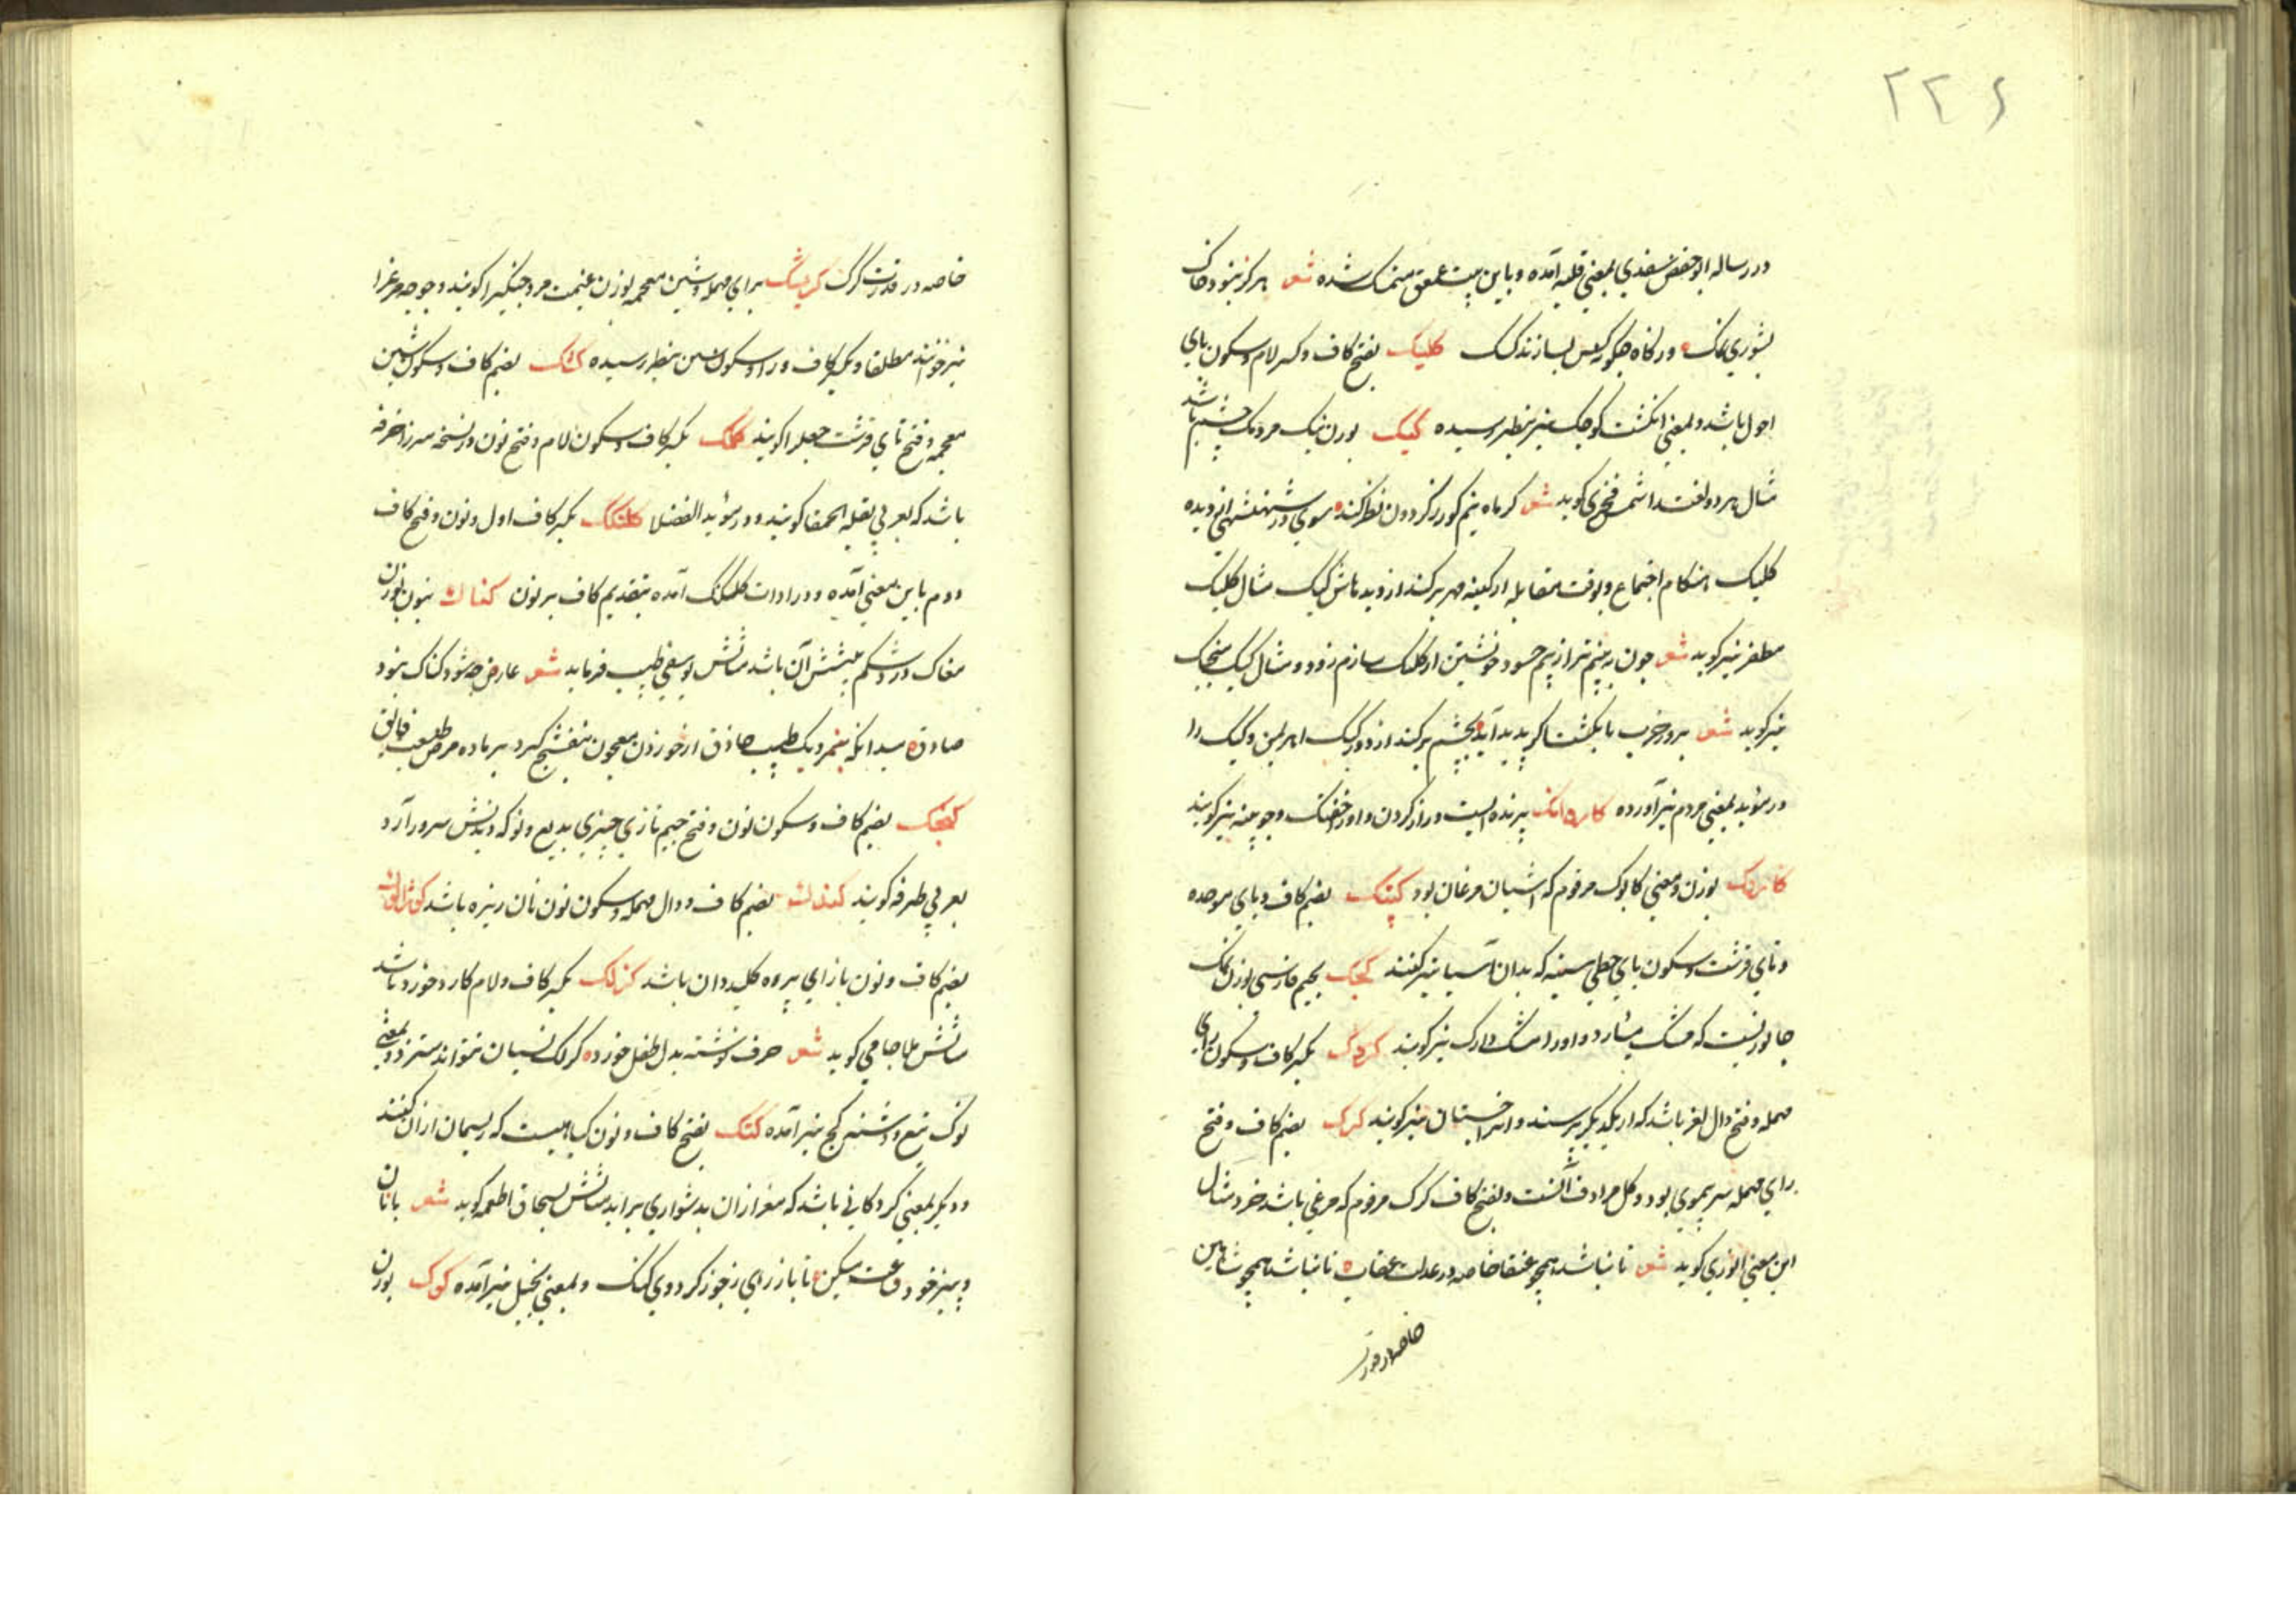 ۲۲۶
در رساله ابو حفص سغدی بمعنی قلیه آمده و باین بیت عمعق متمسک شده شعر هرگز نبود خاک
بشوری نمک
کلیک بفتح کاف و کسر لام و سکون یای
احول باشد و بمعنی انگشت کوچک نیز بنظر رسیده کیک بوزن نیک مردمک چشم باشد
مثال هر دو لغت را شمس فخری گوید شعر گر ماه نیم کور ز گردون نظر کنده سوی در شهنشهی از دیده
کلیک هنگام اجتماع و بوقت مقابله از کینه مهر بر کند از دیده هاش کیک مثال کلیک
مظفر نیز گوید شعر چون به بینم ترا ز بیم حسود خویشتن را کلیک سازم زود و مثال کیک منجیک
نیز گوید شعر بروز حرب بانگشت اگر پدید آید بچشم بر کند از دور کیک اهریمن و کیک را
در مؤید بمعنی مردم نیز آورده کاروانک پرنده ایست دراز گردن و او را خفتک و چوبینه نیز گویند
کابک بوزن و معنی کابوک مرقوم که آشیان مرغان بود کبتک بضم کاف و بای موحده
و تای قرشت و سکون بای حطی میتینه که بدان آسیا تیز کنند کپک بجیم فارسی بوزن نمک
جانوریست که مشک میآرد و او را مشک دارک نیز گویند کردک بکسر کاف و سکون رای
مهمله و فتح دال لغز باشد که از یکدیگر پرسند و آنرا چیستان نیز گویند کرک بضم کاف و فتح
رای مهمله سر بیموی بود و کل مرادف آنست و بفتح کاف کرک مرقوم که مرغی باشد خرد مثال
این معنی انوری گوید شعر تا نباشد همچو عنقا خاصه در عدلت عقاب ه تا نباشد همچو شاهین
خاصه در قدرت
خاصه در قدرت کرک کریشک برای مهمله و شین معجمه بوزن غنیمت مرد جنگی را گویند و جوجه مرغ را
نیز خوانند مطلقا و بکسر کاف و را و سکون شین بنظر رسیده کشتک بضم کاف و سکون شین
معجمه و فتح تای قرشت جعل را گویند کلنک بکسر کاف و سکون لام و فتح نون در نسخه سرزا خرفه
باشد که بعربی بقلة الحمقا گویند و در مؤید الفضلا کلنکک بکسر کاف اول و نون و فتح کاف
دوم باین معنی آمده و در ادات کلکنک آمده بتقدیم کاف بر نون کناک بنون بوزن
مغاک درد شکم پیچش آن باشد مثالش یوسفی طبیب فرماید شعر عارض چو شود کناک نبود
صادق ه میدانکه بنزدیک طبیب حاذق از خوردن معجون بنفشج گیرد بر ماده مرض طبیعت فایق
کنجک بضم کاف و سکون نون و فتح جیم تازی چیزی بدیع و نو که دیدنش سرور آرد
بعربی طرفه گویند کندک بضم کاف و دال مهمله و سکون نون نان ریزه باشد
بضم کاف و نون با زای پره کلیدان باشد کزلک بکسر کاف و لام کارد خورد باشد
مثالش ملا جامی گوید شعر حرف نوشته بدل طفل خورده کزلک نسیان نتواند سترد و بمعنی
نوک تیغ و دشنه کج نیز آمده کنک بفتح کاف و نون گیاهیست که ریسمان از آن کنند
و دیگر بمعنی گردکانی باشد که مغز از آن بدشواری برآید مثالش بسحاق اطعمه گوید شعر با نان
و پنیر خود قناعت میکن ه تا باز رهی ز جوز گردوی کنک و بمعنی بخیل نیز آمده کوک بوزن